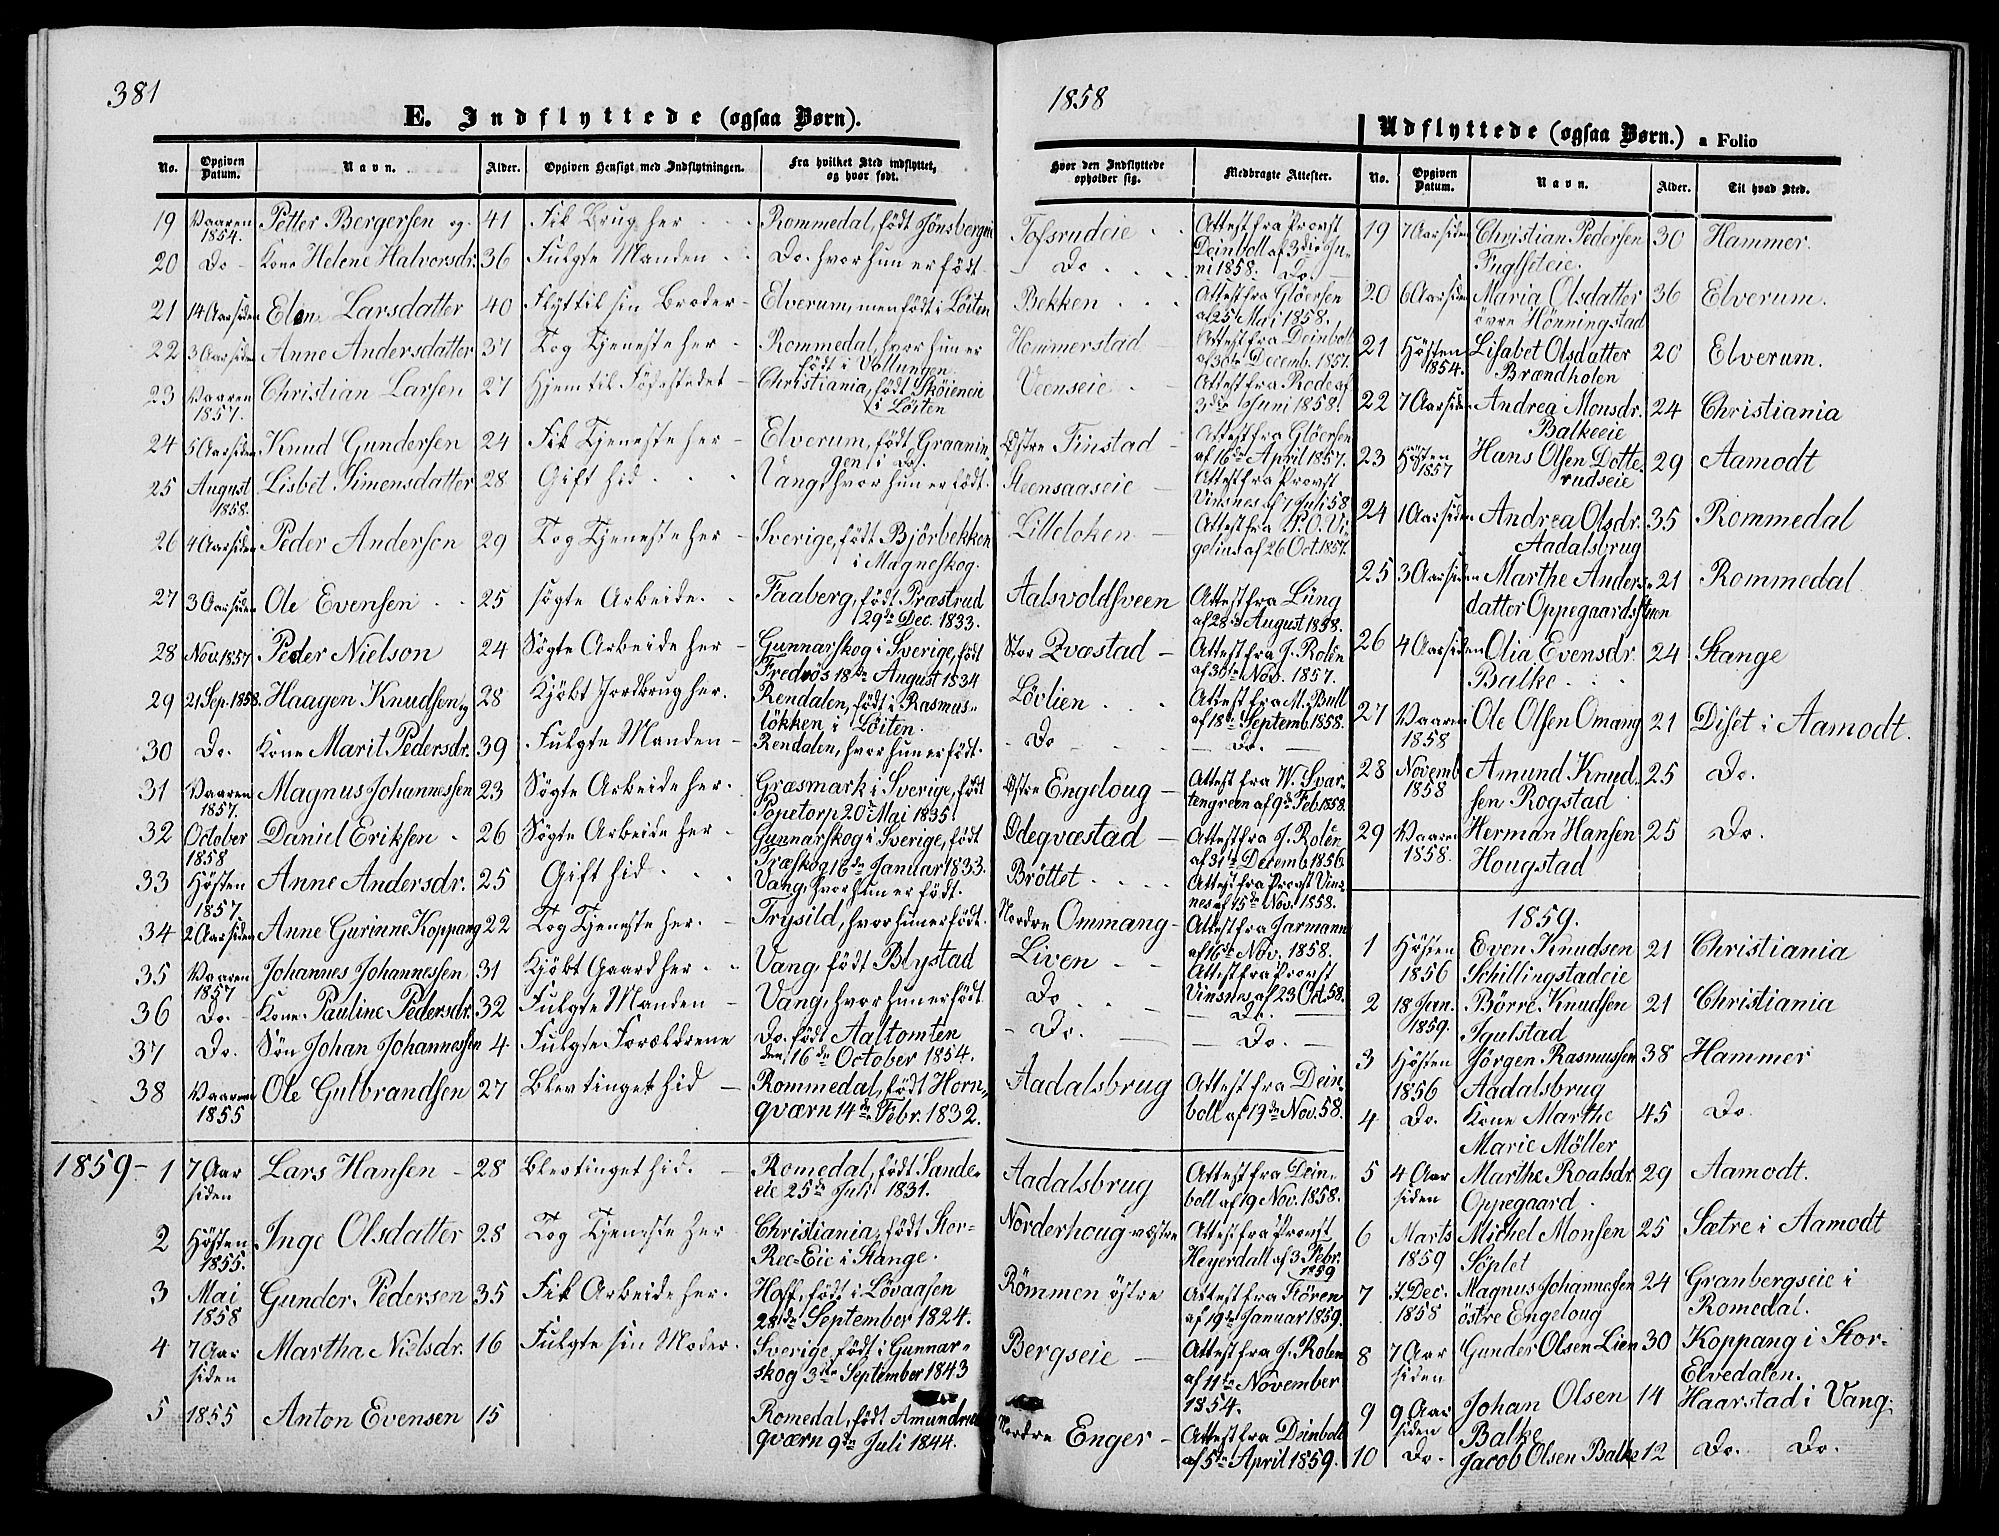 381
1858
E. Indflyttede (ogsaa Børn).
Udflyttede (ogsaa Børn.) a Folio
No. Opgiven Datum. Navn. Alder. Opgiven Hensigt med Indflytningen. Fra hvilket Sted indflyttet, og hvor født.
Hvor den Indflyttede opholder sig. Medbragte Attester.
No. Opgiven Datum. Navn. Alder. Til hvad Sted.
19 Vaaren 1854. Petter Bergersen og 41 Fik Brug her Rommedal, født Jönsbergeie Tofsrudeie Attest fra Provst Deinboll af 3die Juni 1858.
20 Do Kone Helene Halvorsdr. 36 Fulgte Manden Do. hvor hun er født Do Do.
21 14 Aar siden Elene Larsdatter 40 Flyt til sin Broder Elverum, men født i Löiten Bekken Attest fra Glöersen af 25 Mai 1858.
22 3 Aar siden Anne Andersdatter 37 Tog Tjeneste her Rommedal, hvor hun er født i Vollungen. Hommerstad Attest fra Deinboll af 30te Decemb. 1857.
23 Vaaren 1857. Christian Larsen 27 Hjem til Födestedet Christiania, født Sköieneie i Löiten Veenseie Attest fra Rode af 3die Juni 1858.
24 5 Aar siden Knud Gundersen 24 Fik Tjeneste her Elverum, født Graaningen i do. Østre Finstad Attest fra Glöersen af 16de April 1857.
25 August 1858. Lisbet Simensdatter 28 Gift hid Vang, hvor hun er født. Steensaaseie Attest fra Provst Vinsnes af 7 Juli 58
26 4 Aar siden Peder Andersen 29 Tog Tjeneste her Sverige, født Bjørbekken i Magneskog. Lilleloken Attest fra P. O. Vigelius af 26 Oct. 1857.
27 3 Aar siden Ole Evensen 25 søgte Arbeide. Faaberg, født Præstrud 29de Dec. 1833. Aalsvoldsveen Attest fra Lüng af 28de August 1858.
28 Nov. 1857 Peder Nielson 24 Søgte Arbeide her Gunnarskog i Sverige, født Fredrös 18de August 1834 Stor Qvæstad Attest fra J. Rolén af 30te Nov. 1857.
29 21 Sep. 1858. Haagen Knudsen og 28 Kjöbt Jordbrug her. Rendalen, født i Rasmuslökken i Löiten. Lövlien Attest fra M. Bull af 18de Septemb. 1858.
30 Do. Kone Marit Pedersdr. 39 Fulgte Manden Rendalen, hvor hun er født. Do Do.
31 Vaaren 1857. Magnus Johannessen 23 Søgte Arbeide her. Græsmark i Sverige, født Popetorp 20de Mai 1835 Østre Engeloug Attest fra W. Svartengreen af 9de Feb. 1858.
32 October 1858 Daniel Eriksen 26 Søgte Arbeide her Gunnarskog i Sverige, født Træskog 16de Januar 1833. Ödegvæstad Attest fra J. Rolén af 31te Decemb. 1856.
33 Høsten 1857. Anne Andersdr. 25 Gift hid Vang, hvor hun er født. Bröttet Attest fra Provst Vinsnes af 15de Nov. 1858.
34 2 Aar siden Anne Gurinne Koppang 22 Tog Tjeneste her. Trysild, hvor hun er født. Nordre Ommang Attest fra Jarmann af 16de Nov. 1858.
35 Vaaren 1857 Johannes Johannessen 31 Kjöbt Gaard her Vang, født Blystad Liven Attest fra Provst Vinsnes af 23 Oct. 58.
36 Do. Kone Pauline Pedersdr. 32 Fulgte Manden Vang, hvor hun er født Do Do.
37 Do. Sön Johan Johannessen 4 Fulgte Forældrene Do. født Aaltomten den 16de October 1854. Do. Do.
38 Vaaren 1855 Ole Gulbrandsen 27 Blev tinget hid Rommedal, født Hornqværn 14de Febr. 1832. Aadalsbrug Attest fra Deinboll af 19de Nov. 58.
1859 1 7 Aar siden Lars Hansen 28 Blev tinget hid. Romedal, født Sandeeie 25de Juli 1831. Aadalsbrug Attest fra Deinboll af 19 Nov. 1858.
2 Høsten 1855. Inge Olsdatter 28 Tog Tjeneste her Christiania, født Stor-Ree-Eie i Stange. Norderhoug væstre Attest fra Provst Heyerdall af 3 Febr. 1859
3 Mai 1858 Gunder Pedersen 35 Fik Arbeide her. Hoff, født i Lövaasen 28de September 1824. Römmen östre Attest fra Flören af 19de Januar 1859.
4 7 Aar siden Martha Nielsdr. 16 Fulgte sin Moder. Sverige, født i Gunnarskog 3die September 1843 Bergseie Attest fra J. Rolen af 11te November 1854.
5 1855 Anton Evensen 15 Romedal, født Amundrudqværn 9de Juli 1844. Nordre Enger Attest fra Deinboll af 5te April 1859.
19 7 Aar siden Christian Pedersen Fuglseteie. 30 Hammer.
20 6 Aar siden Maria Olsdatter övre Hönningstad 36 Elverum.
21 Høsten 1854. Lisabet Olsdatter Brændholen 20 Elverum.
22 7 Aar siden Andrea Monsdr. Balkeeie 24 Christiania
23 Høsten 1857 Hans Olsen Dotterudseie 29 Aamodt
24 1 Aar siden Andrea Olsdr. Aadalsbrug 35 Rommedal
25 3 Aar siden Marthe Andersdatter Oppegaardstuen 21 Rommedal
26 4 Aar siden Olia Evensdr. Balke 24 Stange
27 Vaaren 1858 Ole Olsen Omang 21 Diset i Aamodt.
28 Novemb 1858 Amund Knudsen Rogstad 25 Do.
29 Vaaren 1858. Herman Hansen Hougstad 25 Do.
1859.
1 Høsten 1856 Even Knudsen Schillingstadeie 21 Christiania
2 18 Jan. 1859. Börre Knudsen Igulstad 21 Christiania
3 Høsten 1856 Jörgen Rasmussen Aadalsbrug 38 Hammer
4 Do. Kone Marthe Marie Möller 45 Do.
5 4 Aar siden Marthe Roalsdr. Oppegaard. 29 Aamodt.
6 Marts 1859 Michel Monsen Söplet 25 Sætre i Aamodt
7 Dec. 1858 Magnus Johannessen östre Engeloug 24 Granbergseie i Romedal.
8 7 Aar siden Gunder Olsen Lien 30 Koppang i Stor-Elvedalen.
9 9 Aar siden Johan Olsen Balke 14 Haarstad i Vang.
10 Do. Jacob Olsen Balke 12 Do. Do.